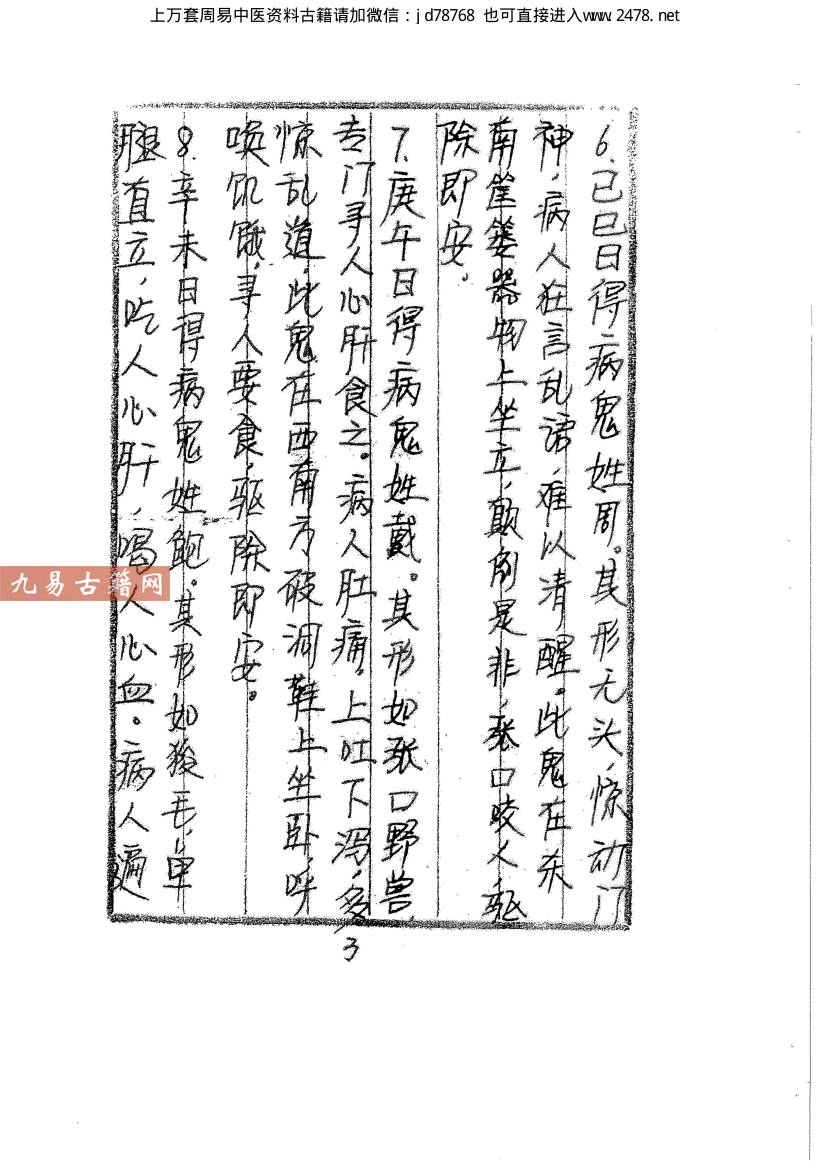 上万套周易中医资料古籍请加微信：jd78768 也可直接进入www.2478.net
6.己巳日得病鬼姓周。其形无头，惊动门
神，病人狂言乱语，难以清醒。此鬼在东
南篓器物上坐立，颠倒是非，张口咬人，驱
除即安。
7.庚午日得病鬼姓戴。其形如张口野兽，
专门寻人心肝食之。病人肚痛，上吐下泻，多
惊乱道，此鬼在西南方破洞鞋上坐卧，呼
唤饥饿，寻人要食，驱除即安。
8.辛未日得病鬼姓鲍。其形如猴毛，单
腿直立，吃人心肝，喝人心血。病人遍
3
九易古籍网